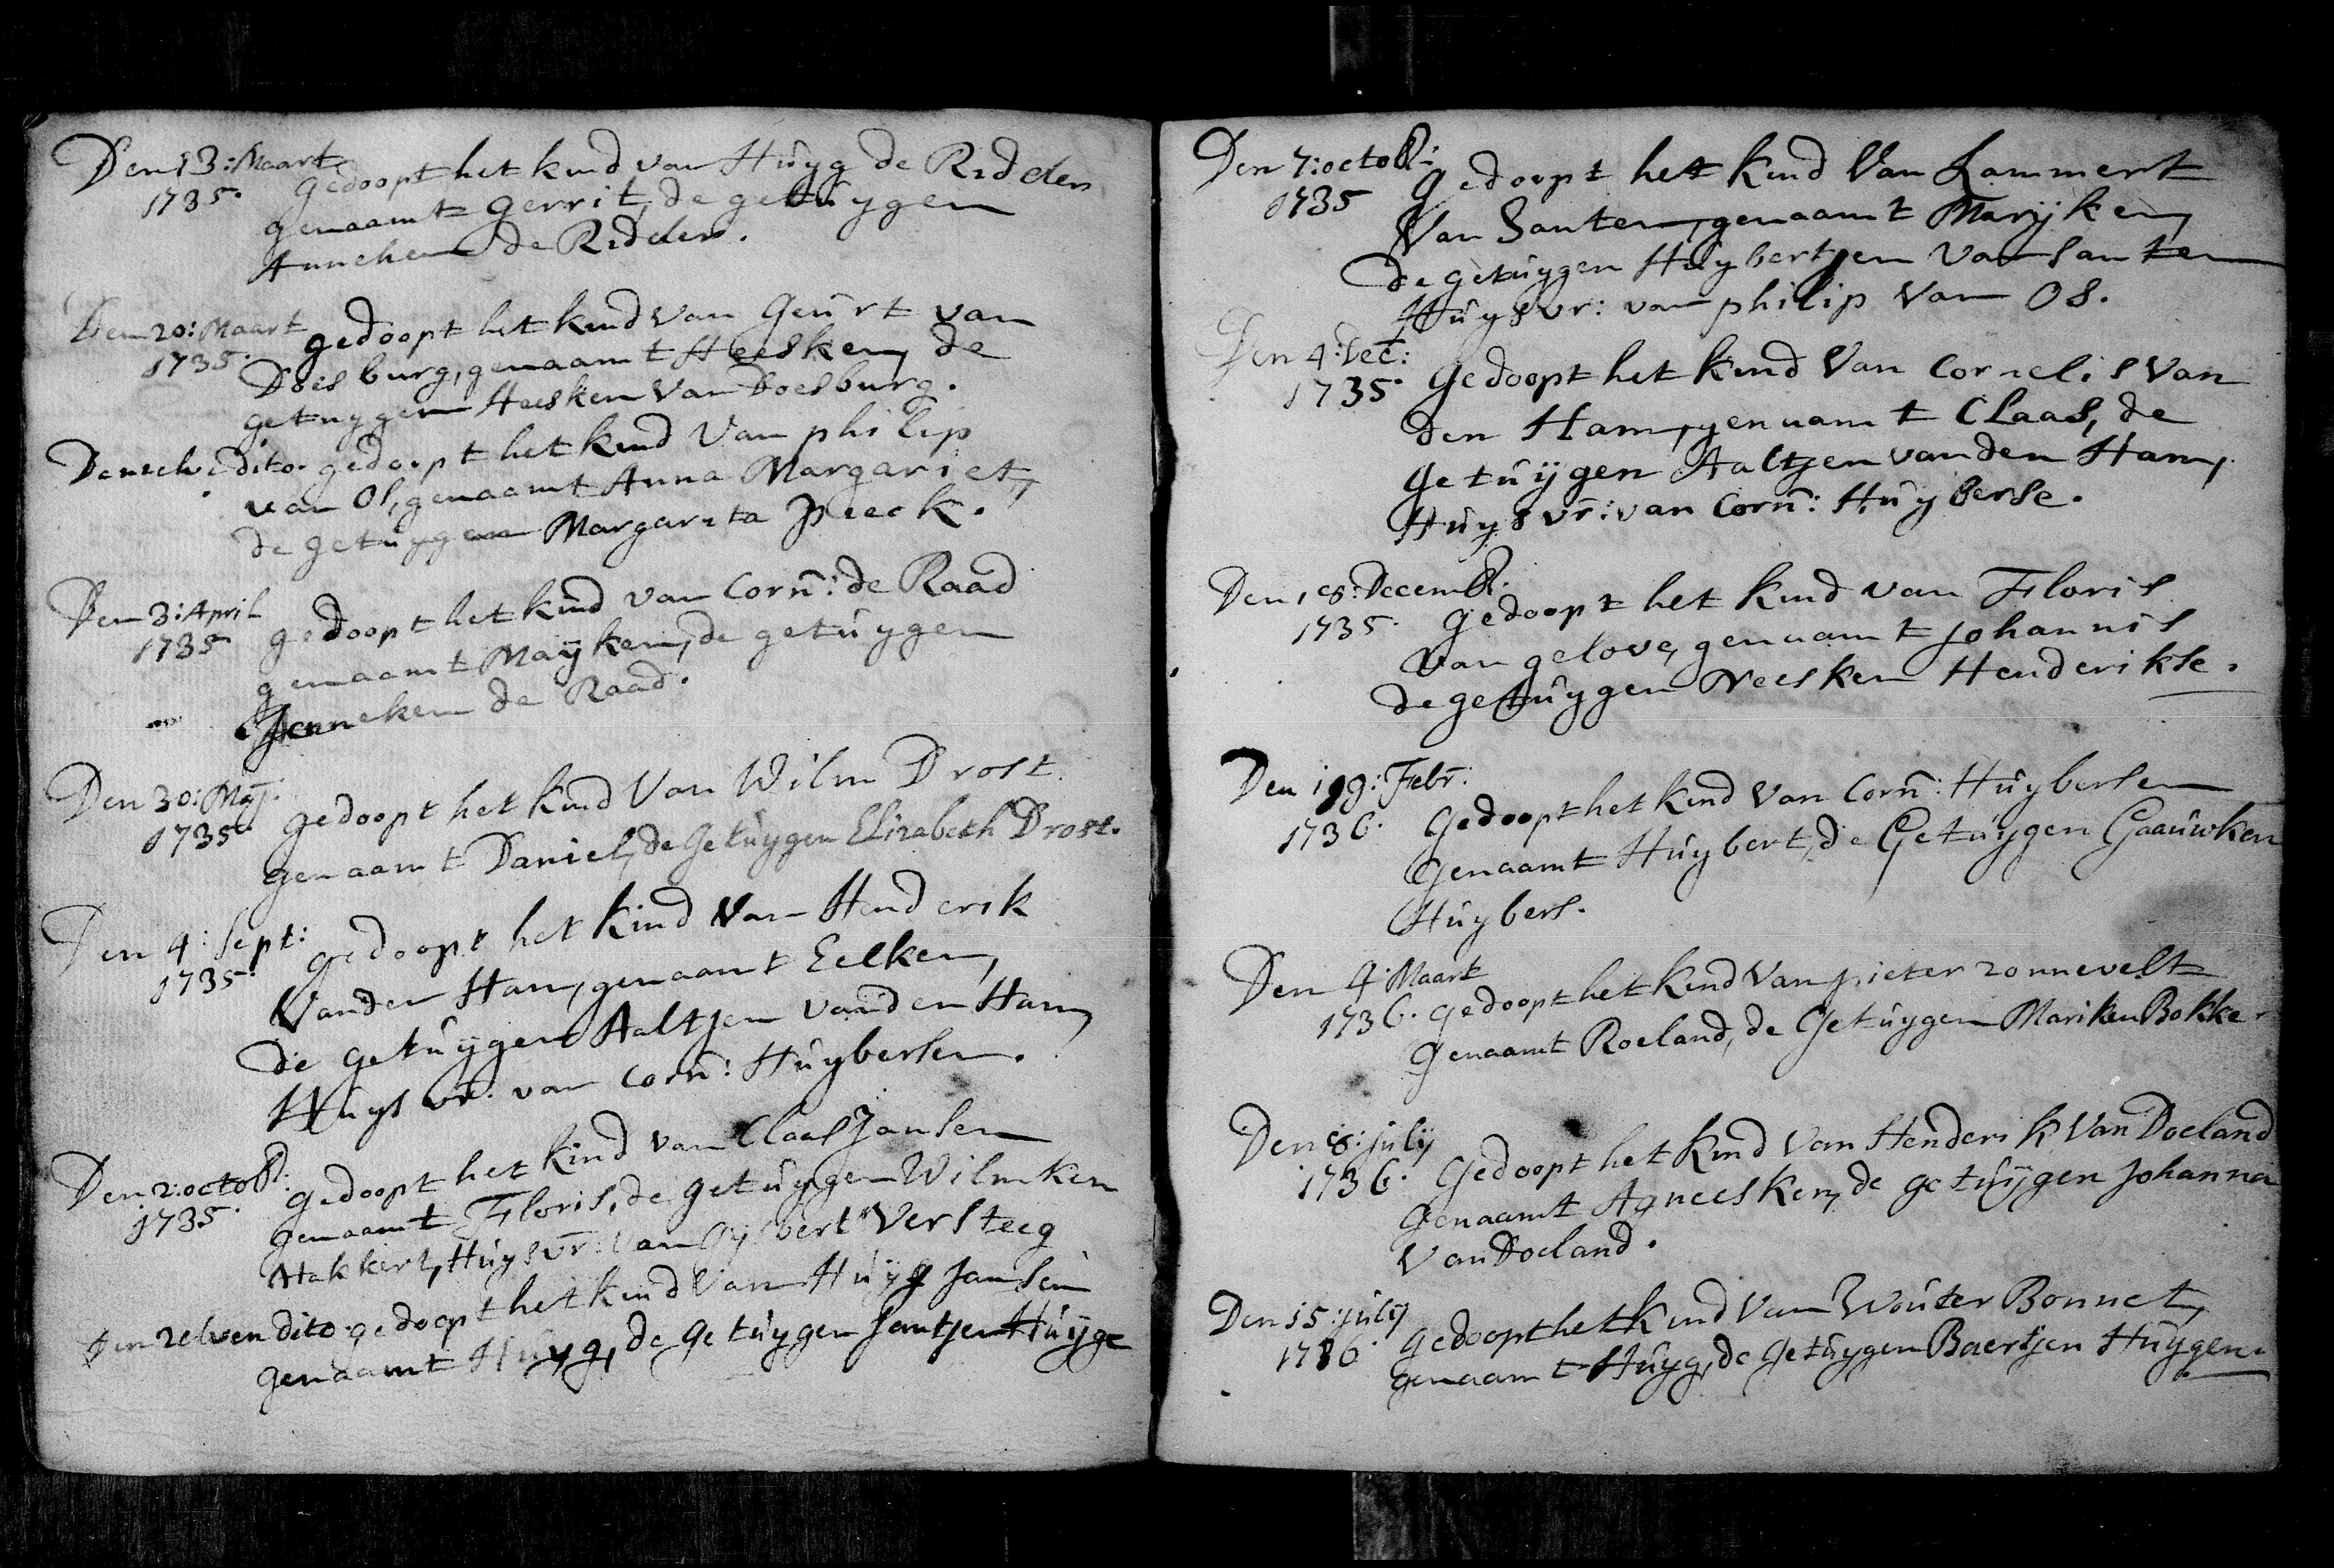 Den 13: Maart
1735. gedoopt het kind van Huyg de Ridder
genaamt Gerrit, de getuygen
Anneken de Ridder.
Den 20: Maart
1735. gedoopt het kind van Geurt van
Doesburg, genaamt Heesken, de
getuygen Heesken van Doesburg.
Den selv: dito. gedoopt het kind van philip
van Os, genaamt Anna Margariet,
de getuygen Margarita Peeck.
Den 3: April
1735 gedoopt het kind van Corn: de Raad
genaamt Maÿken, de getuygen
Jenneken de Raad.
Den 30: Maÿ.
1735. gedoopt het kind Van Wilm Drost.
genaamt Daniel, de Getuygen Elizabeth Drost.
Den 4: Sept:
1735. gedoopt het kind van Henderik
Vanden Ham, genaamt Eelken,
de getuÿgen Aaltjen vanden Ham,
Huys vr: van Corn: Huybersen.
Den 2: octob:
1735. gedoopt het kind van Claas Jansen
genaamt Floris, de getuygen Wilmken
Hakkert, Huysvr: van Gysbert Versteeg
Den zelven dito. gedoopt het kind Van Huÿg Jansen
genaamt Huyg, de Getuygen Jantjen Huÿge
Den 7: octob:
1735 gedoopt het kind Van Lammert
Van Santen, genaamt Marÿken,
de getuygen Huybertjen van Santen
Huysvr: van philip van Os.
Den 4: Dec:
1735. gedoopt het kind Van Cornelis Van
den Ham, genaamt Claas, de
Getuÿgen Aaltjen vanden Ham,
Huysvr: van Corn: Huyberse.
Den 18: Decemb:
1735. gedoopt het kind van Floris
van gelove, genaamt Johannis
de getuygen Neesken Henderikse.
Den 19: Febr:
1736. Gedoopt het kind van Corn: Huybersen
Genaamt Huybert, de Getuygen Gaauwken
Huybers.
Den 4: Maart
1736. gedoopt het kind Van pieter zonnevelt
Genaamt Roeland, de Getuygen Mariken Bokke
Den 8: julÿ
1736. Gedoopt het kind van Henderik Van Doeland
Genaamt Agneesken, de getuÿgen Johanna
Van Doeland.
Den 15: julÿ
1736 Gedoopt het kind Van Wouter Bonnet,
genaamt Huyg, de Getuygen Baertjen Huygen.